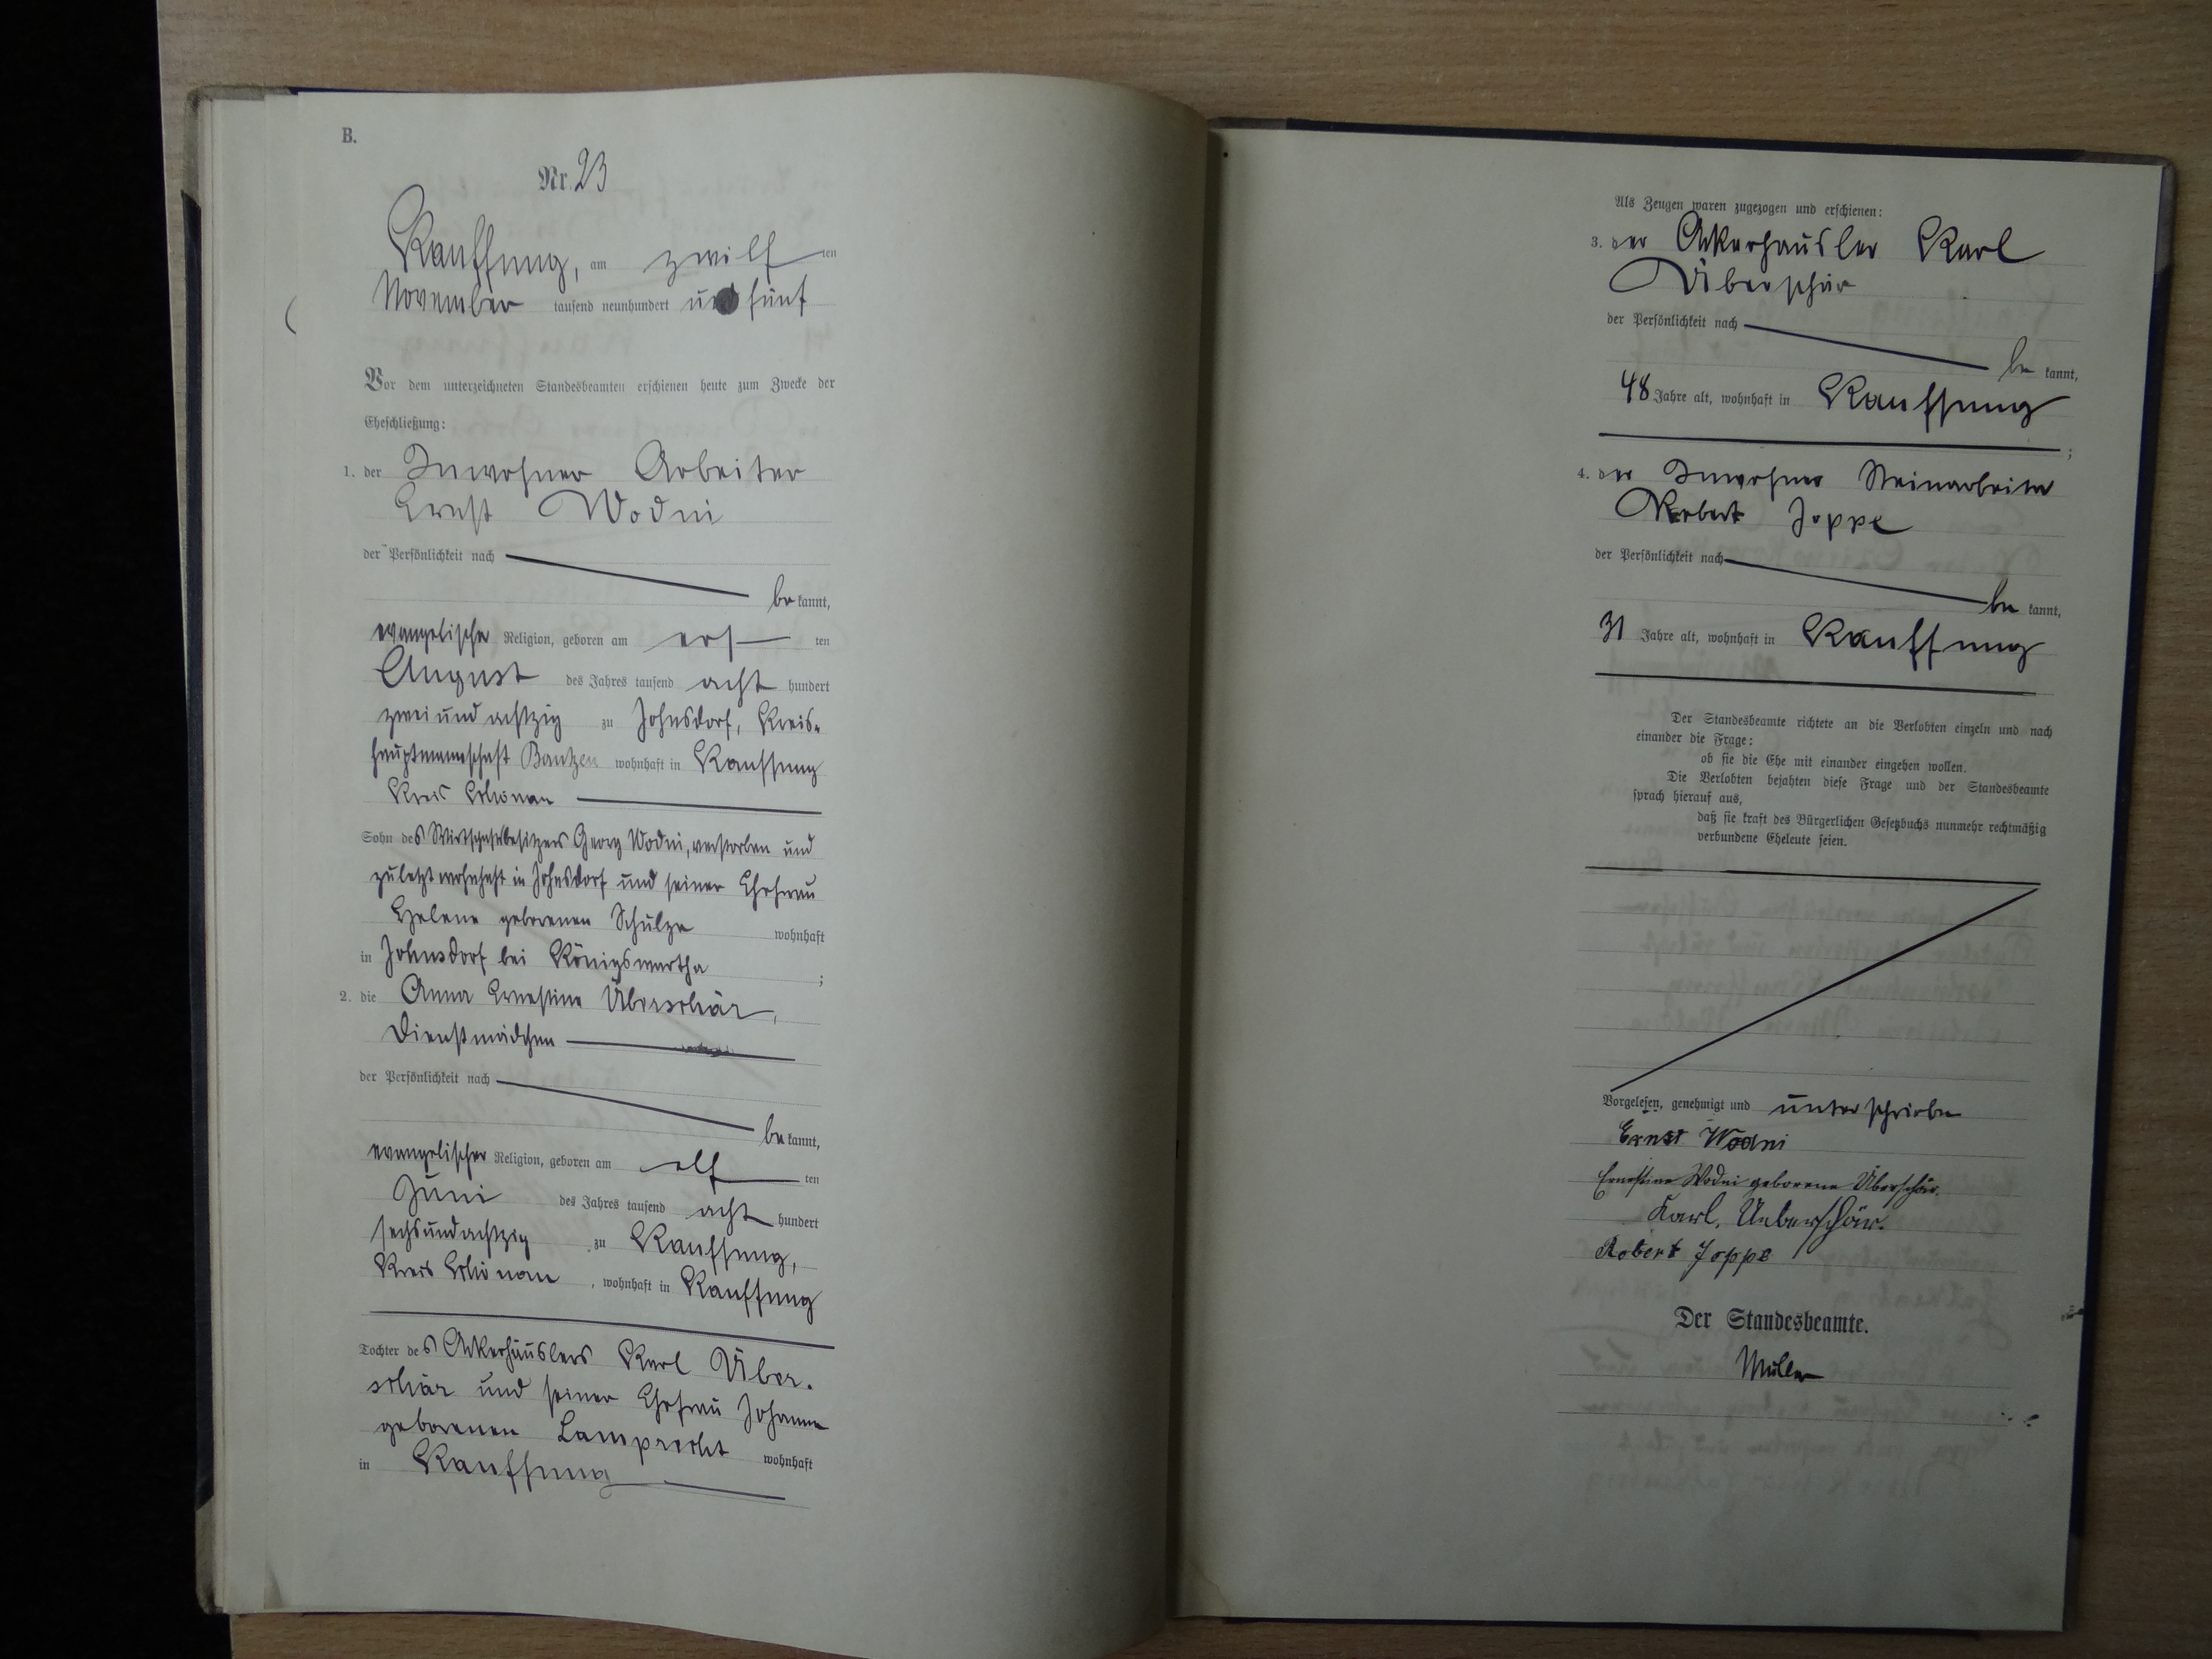 B.
Nr. 23
Kauffung, am zwölf ten
November tausend neunhundert und fünf
Vor dem unterzeichneten Standesbeamten erschienen heute zum Zwecke der
Eheschließung:
1. der Inwohner Arbeiter
Ernst Wodni
der Persönlichkeit nach
be kannt,
evangelischer Religion, geboren am ers ten
August des Jahres tausend acht hundert
zweiundachtzig zu Johnsdorf, Kreis-
hauptmannschaft Bautzen wohnhaft in Kauffung
Kreis Schönau
Sohn des Wirtschaftsbesitzers Georg Wodni, verstorben und
zuletzt wohnhaft in Johnsdorf und seiner Ehefrau
Helene geborenen Schulze wohnhaft
in Johnsdorf bei Königswartha ;
2. die Anna Ernestine Überschär,
Dienstmädchen
der Persönlichkeit nach
be kannt,
evangelischer Religion, geboren am elf ten
Juni des Jahres tausend acht hundert
sechsundachtzig zu Kauffung,
Kreis Schönau , wohnhaft in Kauffung
Tochter des Ackerhäuslers Karl Über-
schär und seiner Ehefrau Johanne
geborenen Lamprecht wohnhaft
in Kauffung
Als Zeugen waren zugezogen und erschienen:
3. der Ackerhäusler Karl
Überschär
der Persönlichkeit nach
be kannt,
48 Jahre alt, wohnhaft in Kauffung
;
4. der Inwohner Steinarbeiter
Robert Joppe
der Persönlichkeit nach
be kannt,
31 Jahre alt, wohnhaft in Kauffung
Der Standesbeamte richtete an die Verlobten einzeln und nach
einander die Frage:
ob sie die Ehe mit einander eingehen wollen.
Die Verlobten bejahten diese Frage und der Standesbeamte
sprach hierauf aus,
daß sie kraft des Bürgerlichen Gesetzbuchs nunmehr rechtmäßig
verbundene Eheleute seien.
Vorgelesen, genehmigt und unterschrieben
Ernst Wodni
Ernestine Wodni geborene Überschär.
Karl, Ueberschär.
Robert Joppe
Der Standesbeamte.
Müller